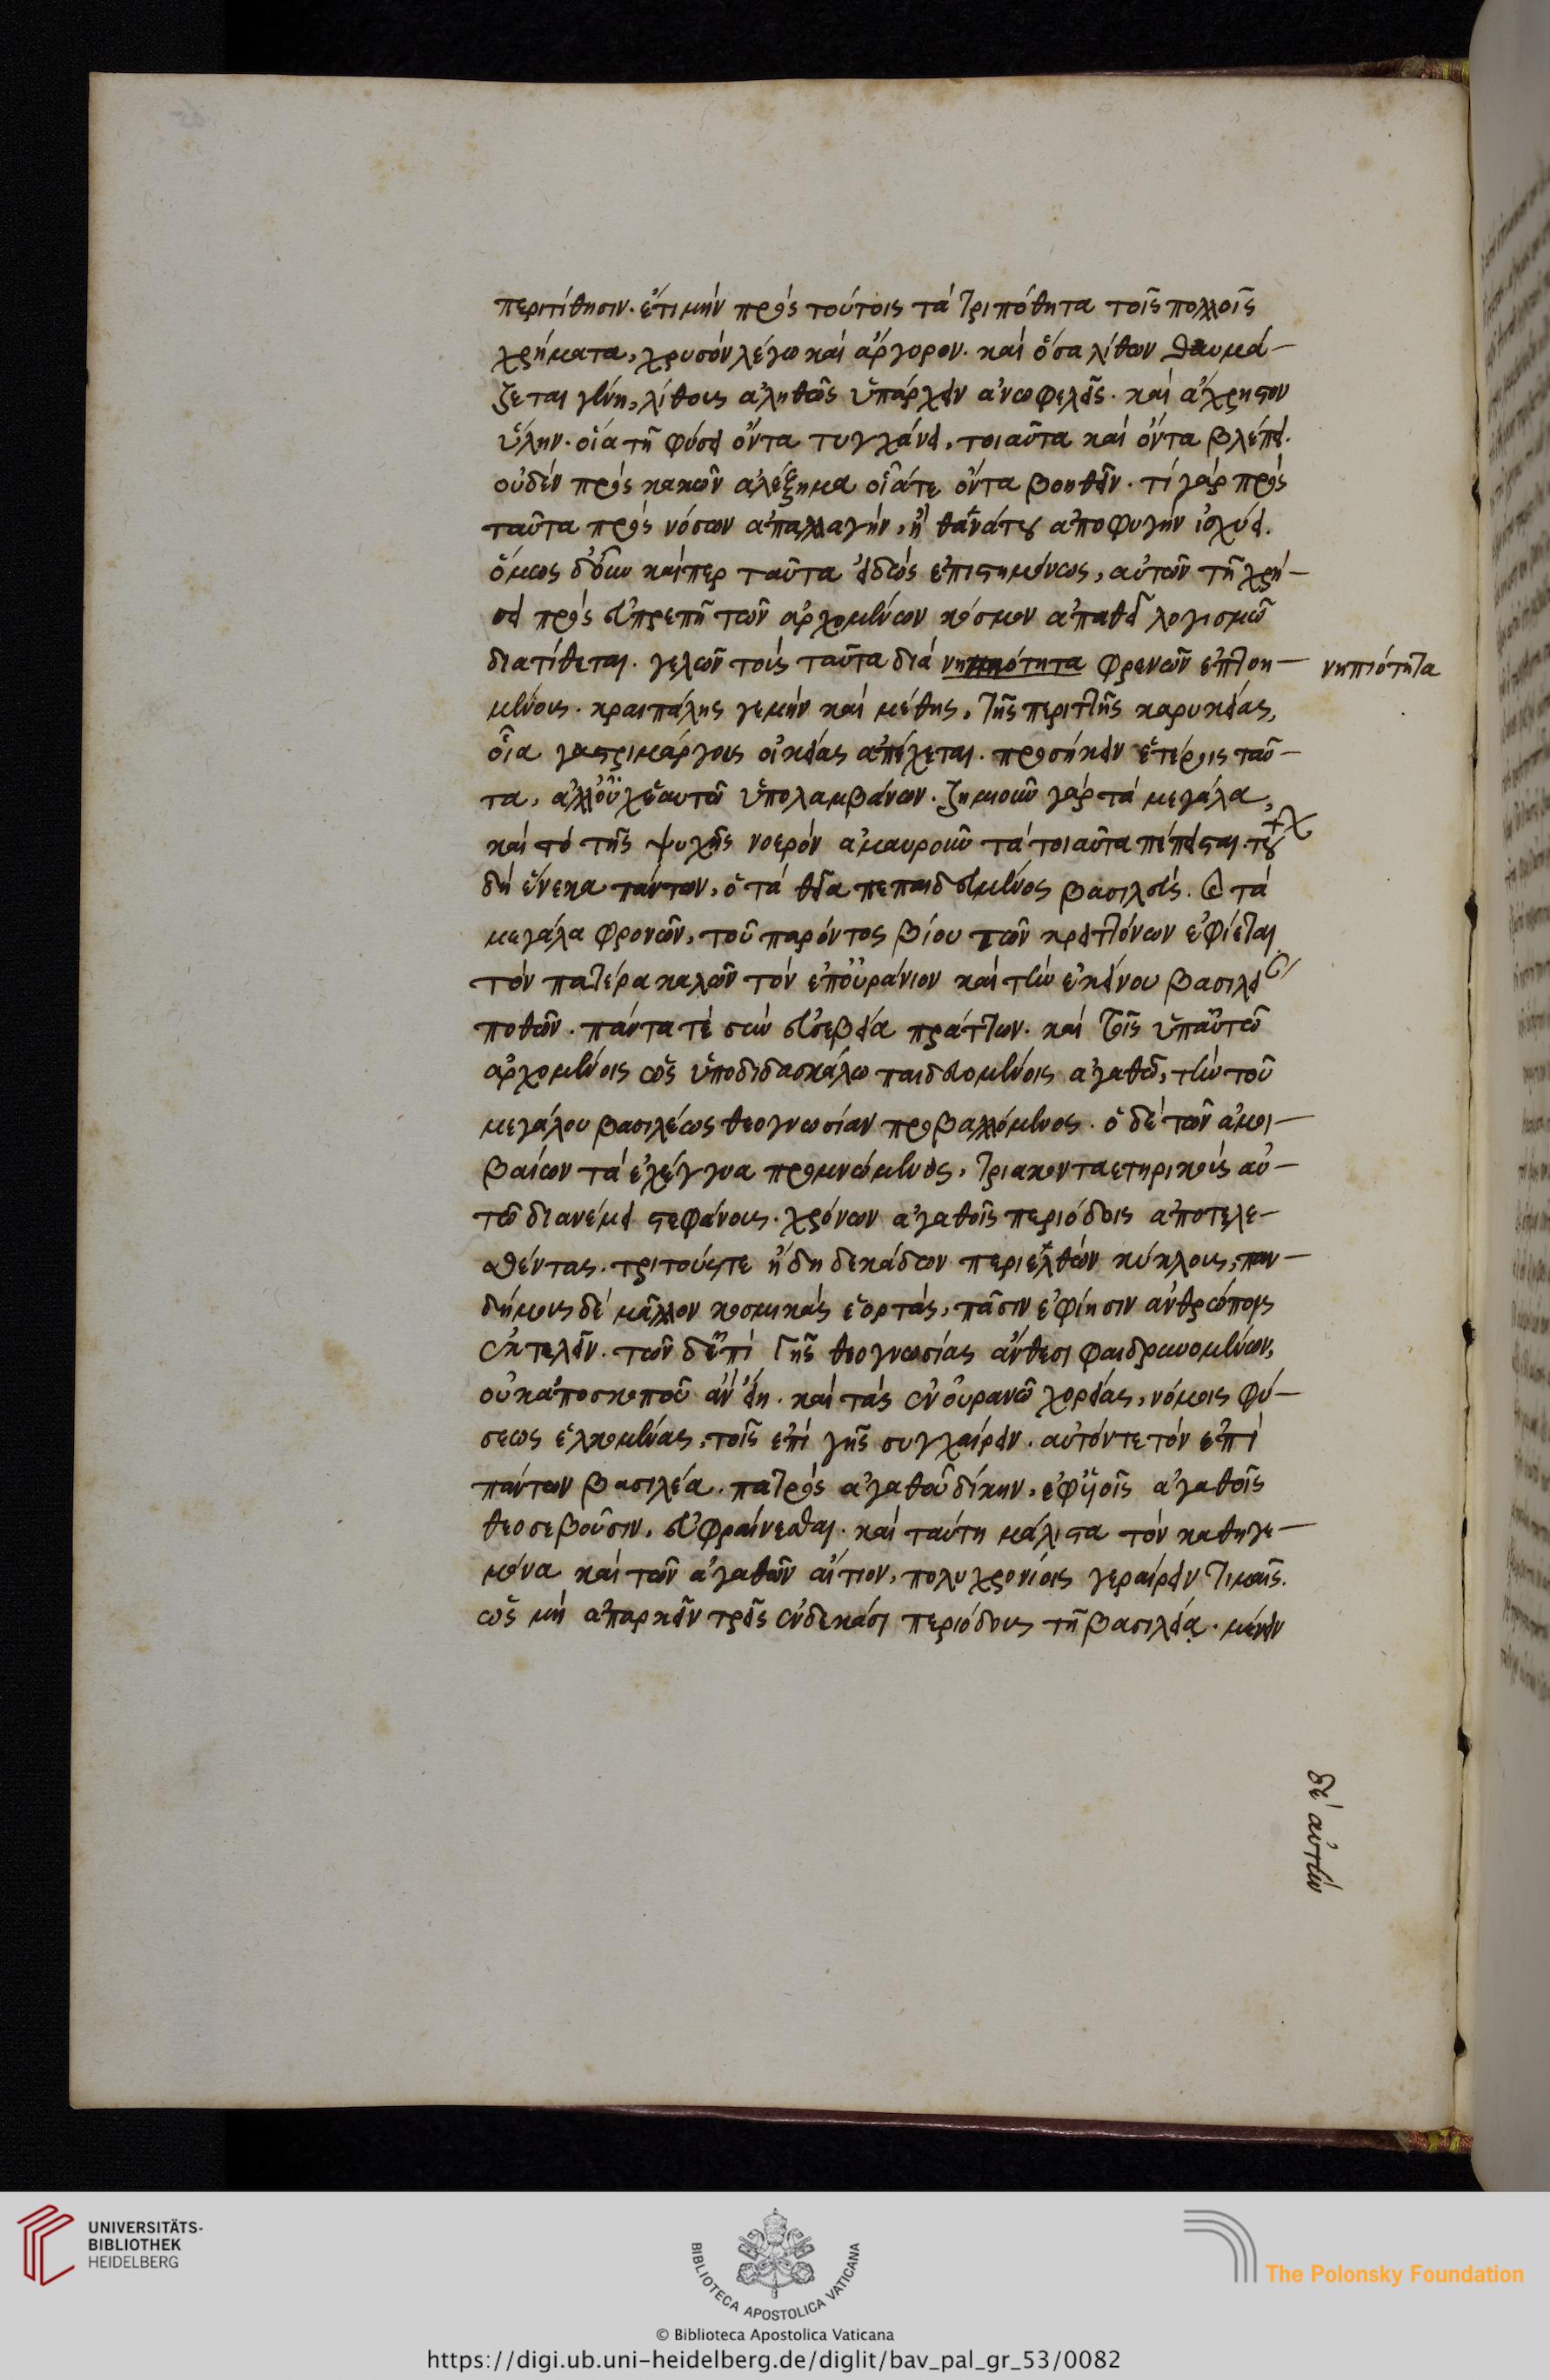 περιτίθησιν. ἔτι μὴν πρὸς τούτοις τὰ τριπόθητα τοῖς πολλοῖς
χρήματα, χρυσὸν λέγω καὶ ἄργυρον. καὶ ὅσα λίθων θαυμά-
ζεται γένη, λίθους ἀληθῶς ὑπάρχειν ἀνωφελεῖς. καὶ ἄχρηστον
ὕλην. οἷα τῇ φύσει ὄντα τυγχάνει, τοιαῦτα καὶ ὄντα βλέπει.
οὐδὲν πρὸς κακῶν ἀλέξημα οἷάτε ὄντα βοηθεῖν. τί γὰρ πρὸς
ταῦτα πρὸς νόσων ἀπαλλαγὴν, ἢ θανάτου ἀποφυγὴν ἰσχύει.
ὅμως δ' οὖν καίπερ ταῦτα εἰδὼς ἐπιστημόνως, αὐτῶν τῇ χρή-
σει πρὸς εὐπρεπῆ τῶν ἀρχομένων κόσμον ἀπαθεῖ λογισμῷ
διατίθεται. γελῶν τοὺς ταῦτα διὰ νηπιότητα φρενῶν ἐπτοη- νηπιότητα
μένους. κραιπάλης γεμὴν καὶ μέθης, τῆς περιττῆς καρυκείας,
οἷα γαστριμάργοις οἰκείας ἀπέχεται. προσήκειν ἑτέροις ταῦ-
τα, ἀλλ' οὐχ ἑαυτῷ ὑπολαμβάνων. ζημιοῦν γὰρ τὰ μεγάλα,
καὶ τὸ τῆς ψυχῆς νοερὸν ἀμαυροῦν τὰ τοιαῦτα πέπεισται. τού
δὴ ἕνεκα πάντων, ὁ τὰ θεῖα πεπαιδευμένος βασιλεύς. καὶ τὰ
μεγάλα φρονῶν, τοῦ παρόντος βίου τῶν κρειττόνων ἐφίεται
τὸν πατέρα καλῶν τὸν ἐπουράνιον καὶ τὴν ἐκείνου βασιλεί
ποθῶν. πάντα τὲ σὺν εὐσεβείᾳ πράττων. καὶ τοῖς ὑπ' αὐτῷ
ἀρχομένοις ὡς ὑποδιδασκάλω παιδευομένοις ἀγαθῷ, τὴν τοῦ
μεγάλου βασιλέως θεογνωσίαν προβαλλόμενος. ὁ δὲ τῶν ἀμοι-
βαίων τὰ ἐχέγγυα προμνώμενος, τριακονταετηρικοὺς αὐ-
τῷ διανέμει στεφάνους. χρόνων ἀγαθοῖς περιόδοις ἀποτελε-
σθέντας. τριτούς τε ἤδη δεκάδων περιελθὼν κύκλους, παν-
δήμους δὲ μᾶλλον κοσμικὰς ἑορτὰς, πᾶσιν ἐφίησιν ἀνθρώποις
ἐκτελεῖν. τῶν δ' ἐπὶ γῆς θεογνωσίας ἄνθεσι φαιδρυνομένων,
οὐκ ἀποσκοποῦ ἂν εἴη. καὶ τὰς ἐν οὐρανῷ χορείας, νόμοις φύ-
σεως ἑλκομένας, τοῖς ἐπὶ γῆς συγχαίρειν. αὐτόν τε τὸν ἐπὶ
πάντων βασιλέα. πατρὸς ἀγαθοῦ δίκην, ἐφ' υἱοῖς ἀγαθοῖς
θεοσεβοῦσιν, εὐφραίνεσθαι. καὶ ταύτῃ μάλιστα τὸν καθηγε-
μόνα καὶ τῶν ἀγαθῶν αἴτιον, πολυχρονίοις γεραίρειν τιμαῖς.
ὡς μὴ ἀπαρκεῖν τρεῖς ἐν δεκάσι περιόδους τῇ βασιλείᾳ. μένειν
δὲ αὐτὴν
UNIVERSITÄTS-
BIBLIOTHEK
HEIDELBERG
BIBLIOTECA APOSTOLICA VATICANA
The Polonsky Foundation
© Biblioteca Apostolica Vaticana
https://digi.ub.uni-heidelberg.de/diglit/bav_pal_gr_53/0082